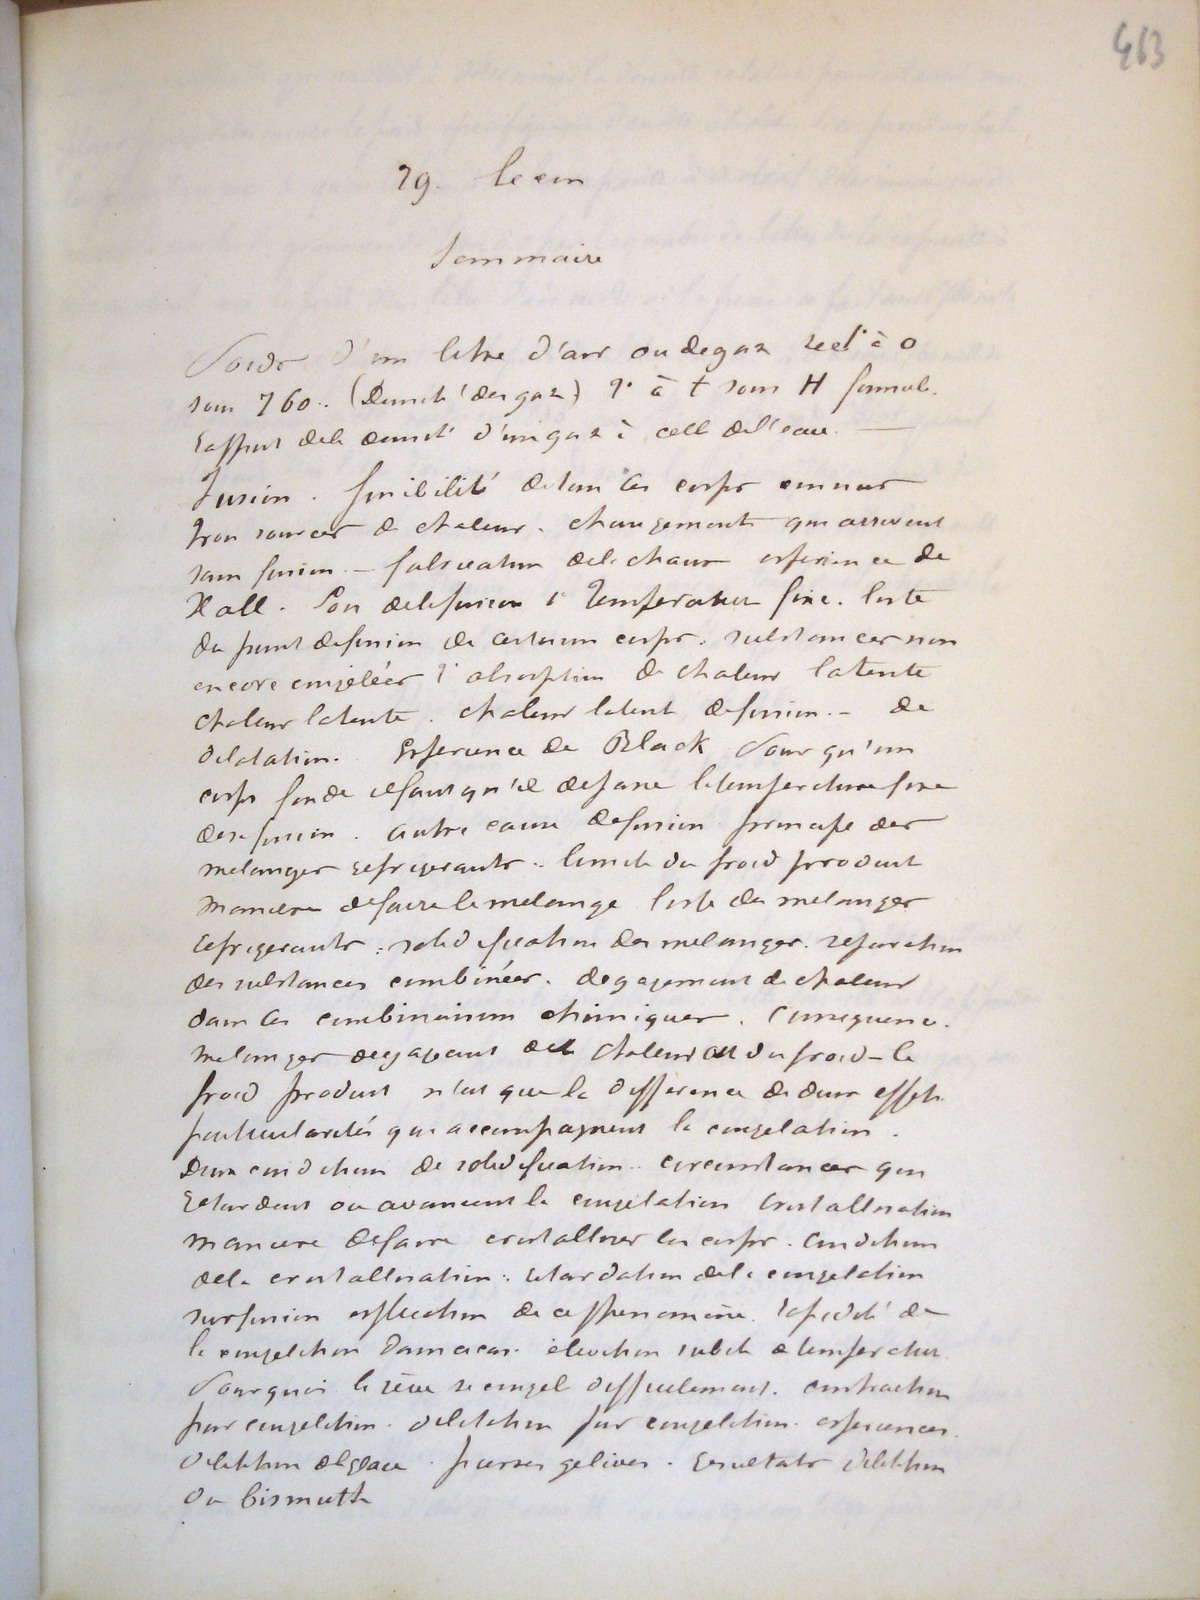 463
29. Lecon
Sommaire
Poids d'un litre d'air ou de gaz sec 1° à 0
sous 760.. (Densité des gaz) 2° à t sous H formul.
Rapport de la densité d'un gaz à celle de l'eau. —
Fusion. fusibilité de tous les corps connus
trois sources de chaleur. changements qui arrivent
sans fusion. — fabrication de la chaux experience de
Hall. Lois de la fusion 1° Temperature fixe. liste
du point de fusion de certains corps. substances non
encore congelées 2° absorption de chaleur latente
chaleur latente. chaleur latente de fusion. — de
dilatation. Experience de Black Pour qu'un
corps fonde il faut qu'il depasse la temperature fixe
de sa fusion. autre cause de fusion principe des
melanges refrigerants.. limite du froid produit
maniere de faire le melange liste des melanges
refrigerants. solidification des melanges. separation
des substances combinées. degagement de chaleur
dans les combinaisons chimiques. Consequence.
melanges degageant de la chaleur ou du froid - le
froid produit n'est que la difference de deux effets
particularités qui accompagnent la congelation.
Deux conditions de solidification.. circonstances qui
retardent ou avancent la congelation Cristallisation
maniere de faire cristalliser les corps. Conditions
de la cristallisation. retardation de la congelation
surfusion explication de ce phenomène. rapidité de
la congelation dans ce cas. élévation subite de temperature.
Pourquoi la sève se congele difficilement. contraction
par congelation. dilatation par congelation. experiences.
dilatation de glace. pierres gelives. resultats dilatation
du bismuth